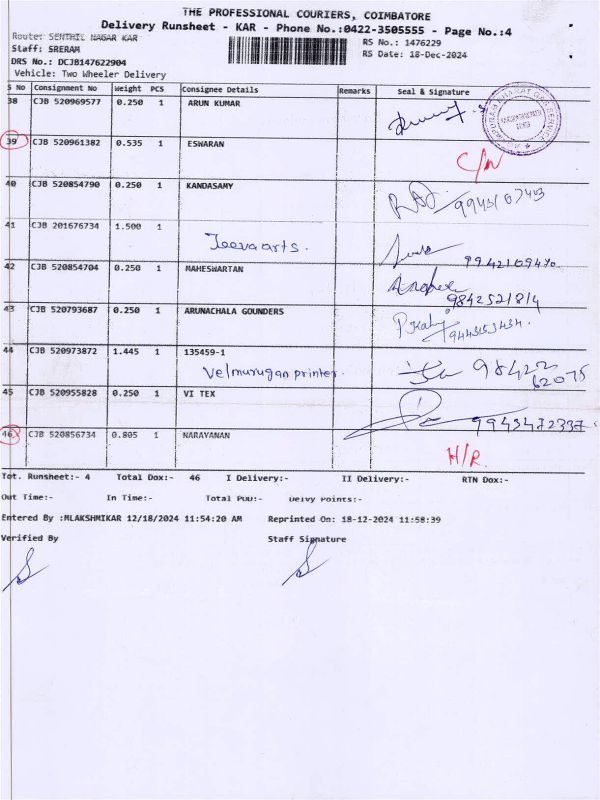 THE PROFESSIONAL COURIERS, COIMBATORE
Delivery Runsheet - KAR - Phone No.:0422-3505555 - Page No.:4
Route: SENTHIL NAGAR KAR
RS No.: 1476229
Staff: SRERAM
RS Date: 18-Dec-2024
DRS No.: DCJB147622904
Vehicle: Two Wheeler Delivery
S No Consignment No Weight PCS Consignee Details Remarks Seal & Signature
38 CJB 520969577 0.250 1 ARUN KUMAR
39 CJB 520961382 0.535 1 ESWARAN
C/N
40 CJB 520854790 0.250 1 KANDASAMY
41 CJB 201676734 1.500 1
Jeevaarts. 9942109470
42 CJB 520854704 0.250 1 MAHESWARTAN
9842521814
43 CJB 520793687 0.250 1 ARUNACHALA GOUNDERS
44 CJB 520973872 1.445 1 135459-1
Velmurugan printer. 984222
62075
45 CJB 520955828 0.250 1 VI TEX
9943472337
46 CJB 520856734 0.805 1 NARAYANAN
H/R.
Tot. Runsheet:- 4 Total Dox:- 46 I Delivery:- II Delivery:- RTN Dox:-
Out Time:- In Time:- Total POD:- Delvy Points:-
Entered By :MLAKSHMIKAR 12/18/2024 11:54:20 AM Reprinted On: 18-12-2024 11:58:39
Verified By Staff Signature